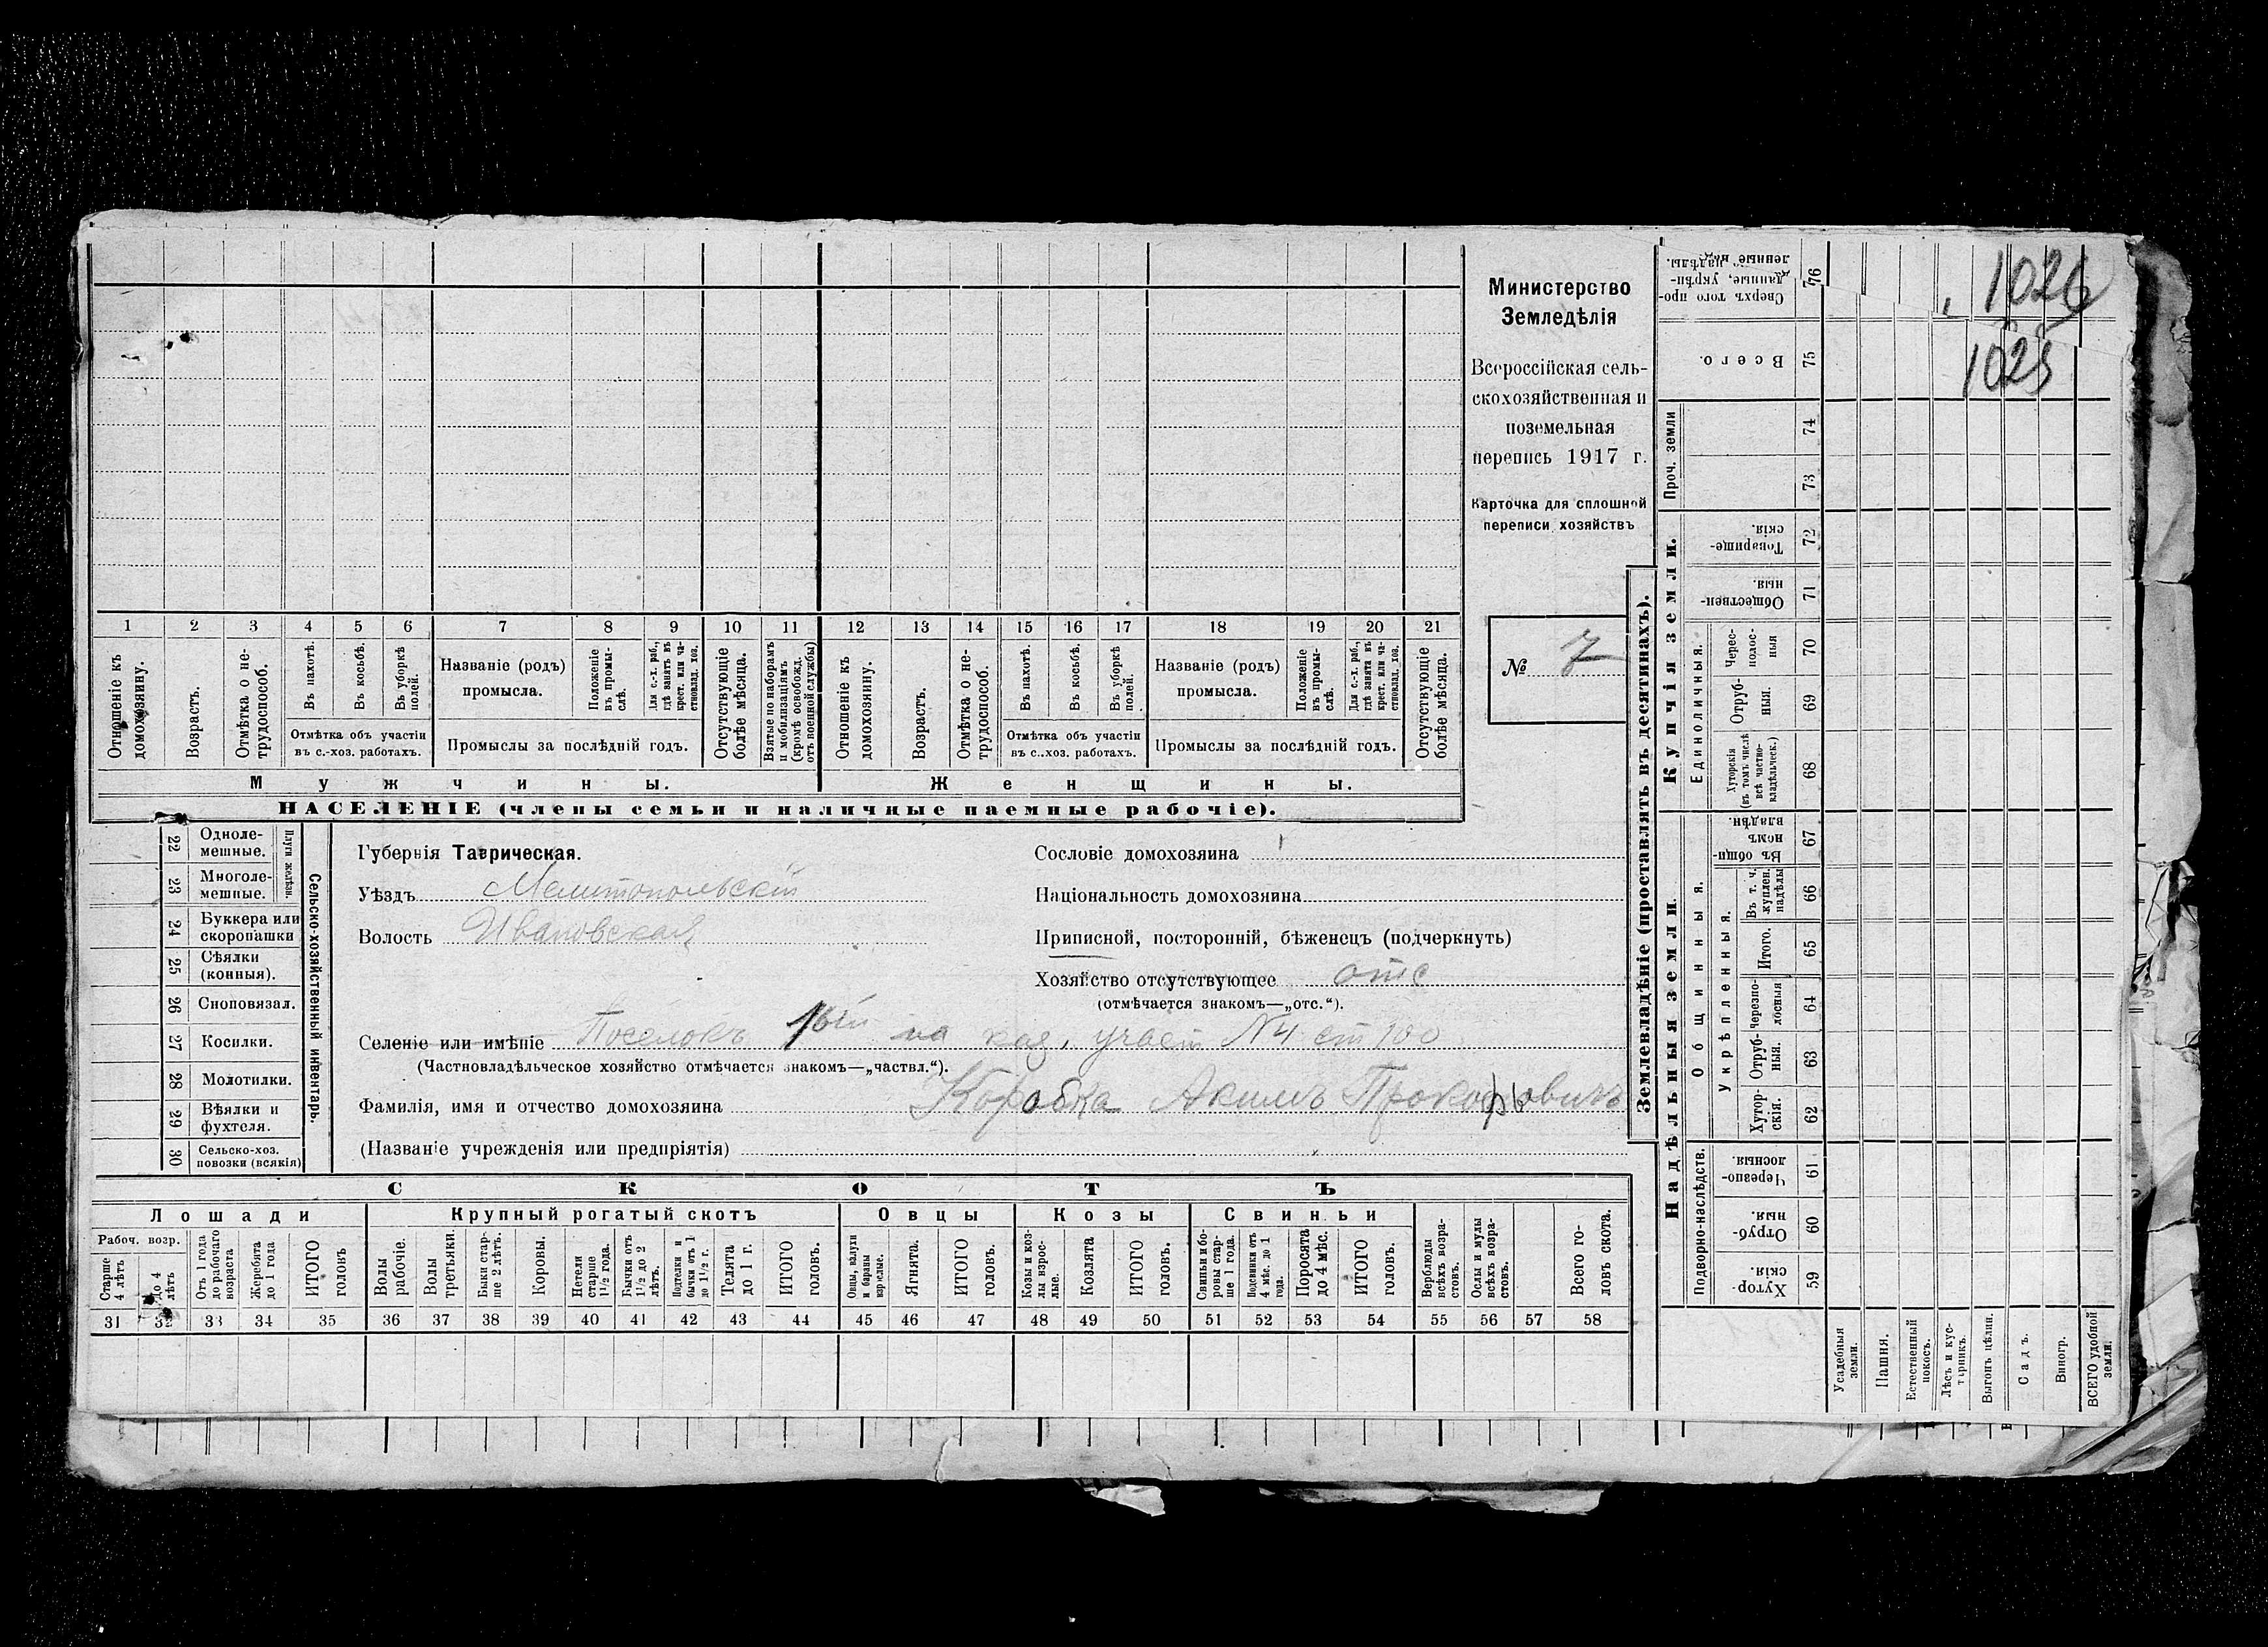 1026
1025
Министерство
Земледѣлія
Всероссійская сель-
скохозяйственная и
поземельная
перепись 1917 г.
Карточка для сплошной
переписи хозяйствъ
№ 7
1 2 3 4 5 6 7 8 9 10 11 12 13 14 15 16 17 18 19 20 21
Отношеніе къ домохозяину.
Возрастъ.
Отмѣтка о не-трудоспособ.
Въ пахотѣ.
Въ косьбѣ.
Въ уборкѣ полей.
Отмѣтка объ участіи
въ с.-хоз. работахъ.
Названіе (родъ)
промысла.
Положеніе въ промы-слѣ.
Для с.-х. раб., гдѣ занятъ въ крест. или ча-стновлад. хоз.
Промыслы за послѣдній годъ.
Отсутствующіе болѣе мѣсяца.
Взятые по наборамъ и мобилизаціямъ (кромѣ освобожд. отъ военной службы)
Отношеніе къ домохозяину.
Возрастъ.
Отмѣтка о не-трудоспособ.
Въ пахотѣ.
Въ косьбѣ.
Въ уборкѣ полей.
Отмѣтка объ участіи
въ с..хоз. работахъ.
Названіе (родъ)
промысла.
Положеніе въ промы-слѣ.
Для с.-х. раб., гдѣ занятъ въ крест. или ча-стновлад. хоз.
Промыслы за послѣдній годъ.
Отсутствующіе болѣе мѣсяца.
Мужчины. Женщины.
НАСЕЛЕНІЕ (члены семьи и наличные наемные рабочіе).
22 Одноле-мешные.
23 Многоле-мешные.
Плуги желѣзн.
24 Буккера или скоропашки
25 Сѣялки (конныя).
26 Сноповязал.
27 Косилки.
28 Молотилки.
29 Вѣялки и фухтеля.
30 Сельско-хоз. повозки (всякія)
Сельско-хозяйственный инвентарь.
Губернія Таврическая.
Уѣздъ Мелитопольскій
Волость Ивановская
Сословіе домохозяина
Національность домохозяина
Приписной, посторонній, бѣженецъ (подчеркнуть)
Хозяйство отсутствующее отс
(отмѣчается знакомъ—„отс.“).
Селеніе или имѣніе Поселокъ на каз. участ №4 ст 100
(Частновладѣльческое хозяйство отмѣчается знакомъ—„частвл.“).
Фамилія, имя и отчество домохозяина Коробка Акимъ Прокофьовичъ
(Названіе учрежденія или предпріятія)
СКОТЪ
Лошади Крупный рогатый скотъ Овцы Козы Свиньи
Рабоч. возр.
Старше 4 лѣтъ
до 4 лѣтъ
Отъ 1 года до рабочаго возраста
Жеребята до 1 года
ИТОГО головъ
Волы рабочіе.
Волы третьяки.
Быки стар-ше 2 лѣтъ.
Коровы.
Нетели старше 1 1/2 года.
Бычки отъ 1 1/2 до 2 лѣтъ.
Подтелки и бычки отъ 1 до 1 1/2 г.
Телята до 1 г.
ИТОГО головъ.
Овцы, валухи и бараны взрослые.
Ягнята.
ИТОГО головъ.
Козы и коз-лы взрос-лые.
Козлята
ИТОГО головъ.
Свиньи и бо-ровы стар-ше 1 года.
Подсвинки отъ 4 мѣс. до 1 года.
Поросята до 4 мѣс.
ИТОГО головъ.
Верблюды всѣхъ возра-стовъ.
Ослы и мулы всѣхъ возра-стовъ.
Всего го-ловъ скота.
31 32 33 34 35 36 37 38 39 40 41 42 43 44 45 46 47 48 49 50 51 52 53 54 55 56 57 58
Землевладѣніе (проставлять въ десятинахъ).
Купчія земли.
Надѣльныя земли.
Проч. земли
Единоличныя.
Общинныя.
Укрѣпленныя.
Подворно-наслѣдств.
76 Сверхъ того про-данные, укрѣп-ленные надѣлы.
75 Всего.
74
73
72 Товарище-скія.
71 Обществен-ныя.
70 Черес-полос-ныя
69 Отруб-ныя.
68 Хуторскія (въ томъ числѣ всѣ частно-владѣльческ.)
67 Въ общи-номъ владѣн.
66 Въ т. ч. куплен. надѣлы
65 Итого.
64 черезпо-лосныя
63 Отруб-ныя.
62 Хутор-скія.
61 Черезпо-лосныя.
60 Отруб-ныя.
59 Хутор-скія.
Усадебныя земли.
Пашня.
Естественный покосъ.
Лѣсъ и кус-тарникъ.
Выгонъ цѣлин.
Садъ.
Виногр.
ВСЕГО удобной земли.